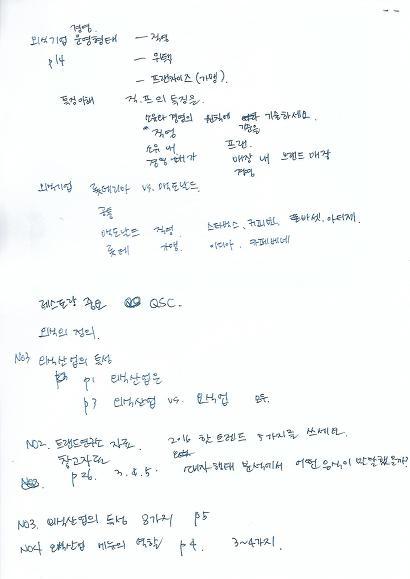 경영
외식기업 운영형태 — 직영
p14 — 위탁
— 프랜차이즈 (가맹)
특징이해 직.프의 특징을
소유와 경영의 원칙에 따라 기술하세요.
직영 프랜.
소유 내
경영 내가 매장 내 브랜드 매장
외식기업 롯데리아 vs. 맥도날드.
공통
맥도날드 직영 스타벅스. 커피빈. 폴바셋. 아티제.
롯데 가맹. 이디야. 카페베네
레스토랑 중요 QSC.
외식의 정의.
NO3 외식산업의 특성
p1 외식산업은
p3 외식산업 vs. 요식업
NO2. 트랜드연구소 자료. 2016 핫 트렌드 5가지를 쓰세요.
참고자료
p26. 3.4.5. 대자 행태 분석에서 어떤 음식이 발달했을까?
NO3. 외식산업의 특성 8가지 p5
NO4 외식산업 메뉴의 역할 p4. 3~4가지.